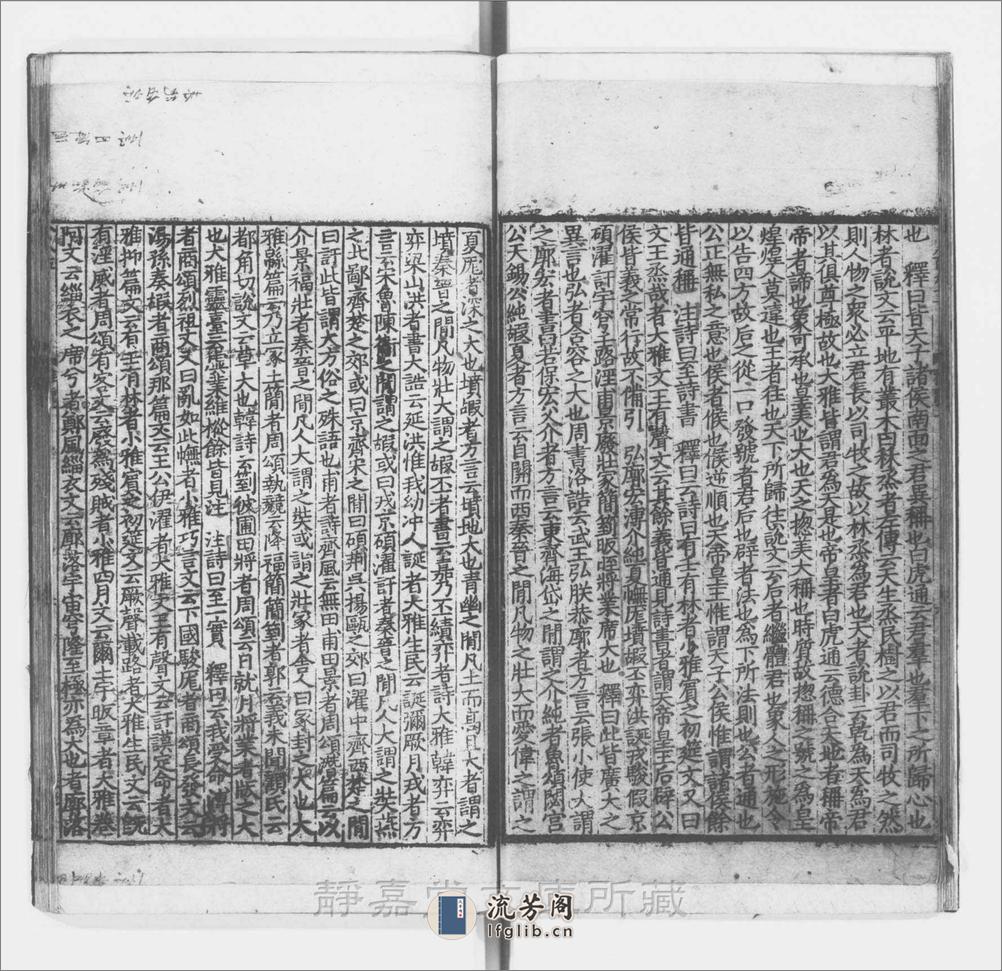 也　釋曰皆天子諸侯南面之君異稱也白虎通云君羣也羣下之所歸心也
林者說文云平地有叢木曰林烝者左傳云天生烝民樹之以君而司牧之然
則人物之衆必立君長以司牧之故以林烝爲君也天者說卦云乾爲天爲君
以其俱尊極故也大雅皆謂君爲天是也帝皇者白虎通云德合天地者稱帝
帝者諦也象可承也皇美也大也天之揔美大稱也時質故揔稱之號之爲皇
煌煌人莫違也王者往也天下所歸往說文云后者繼體君也象人之形施令
以告四方故后之從一口發號者君后也辟者法也爲下所法則也公者通也
公正無私之意也侯者候也候逆順也天帝皇王惟謂天子公侯惟謂諸侯餘
皆通稱　注詩曰至詩書　釋曰云詩曰有壬有林者小雅賓之初筵文又曰
文王烝哉者大雅文王有聲文云其餘義皆通見詩書者謂天帝皇王后辟公
侯皆義之常行故不備引　弘廓宏溥介純夏幠厖墳嘏丕弈洪誕戎駿假京
碩濯訏宇穹壬路淫甫景廢壯冢簡箌昄晊將業席大也　釋曰此皆廣大之
異言也弘者含容之大也周書洛誥云武王弘朕恭廓者方言云張小使大謂
之廓宏者書曰若保宏父介者方言云東齊海岱之間謂之介純者魯頌閟宮
公天錫公純嘏夏者方言云自關而西秦晉之間凡物之壯大而愛偉之謂之
夏厖者深之大也墳嘏者方言云墳地大也青幽之間凡土而高且大者謂之
墳秦晉之間凡物壯大謂之嘏丕者書云嘉乃丕績弈者詩大雅韓弈云弈
弈梁山洪者書大誥云延洪惟我幼冲人誕者大雅生民云誕彌厥月戎者方
言云宋魯陳衞之間謂之嘏或曰戎京碩濯訏者秦晉之間凡人大謂之奘燕
之北鄙齊楚之郊或曰京齊宋之間曰碩荊吳揚甌之郊曰濯中齊西楚之間
曰訏此皆謂大方俗之殊語也甫者詩齊風云無田甫田景者周頌潛篇云以
介景福壯者秦晉之間凡人大謂之奘或謂之壯冢者舍人曰冢封之大也大
雅緜篇云乃立冢土簡者周頌執競云降福簡簡箌者郭云義未聞顧氏云
都角切說文云草大也韓詩云箌彼甫田將者周頌云日就月將業者版之大
也大雅靈臺云虡業維樅餘皆見注　注詩曰至一實　釋曰云我受命溥將
者商頌烈祖文又曰亂如此幠者小雅巧言文云下國駿厖者商頌長發文云
湯孫奏嘏者商頌那篇文云王公伊濯者大雅文王有聲文云訏謨定命者大
雅抑篇文云有壬有林者小雅賓之初筵文云厥聲載路者大雅生民文云旣
有淫威者周頌有客文云廢爲殘賊者小雅四月文云爾土宇昄章者大雅卷
阿文云緇衣之席兮者鄭風緇衣文云廓落宇宙穹隆至極亦爲大也者廓落
靜嘉堂文庫所藏
流芳阁
lfglib.cn